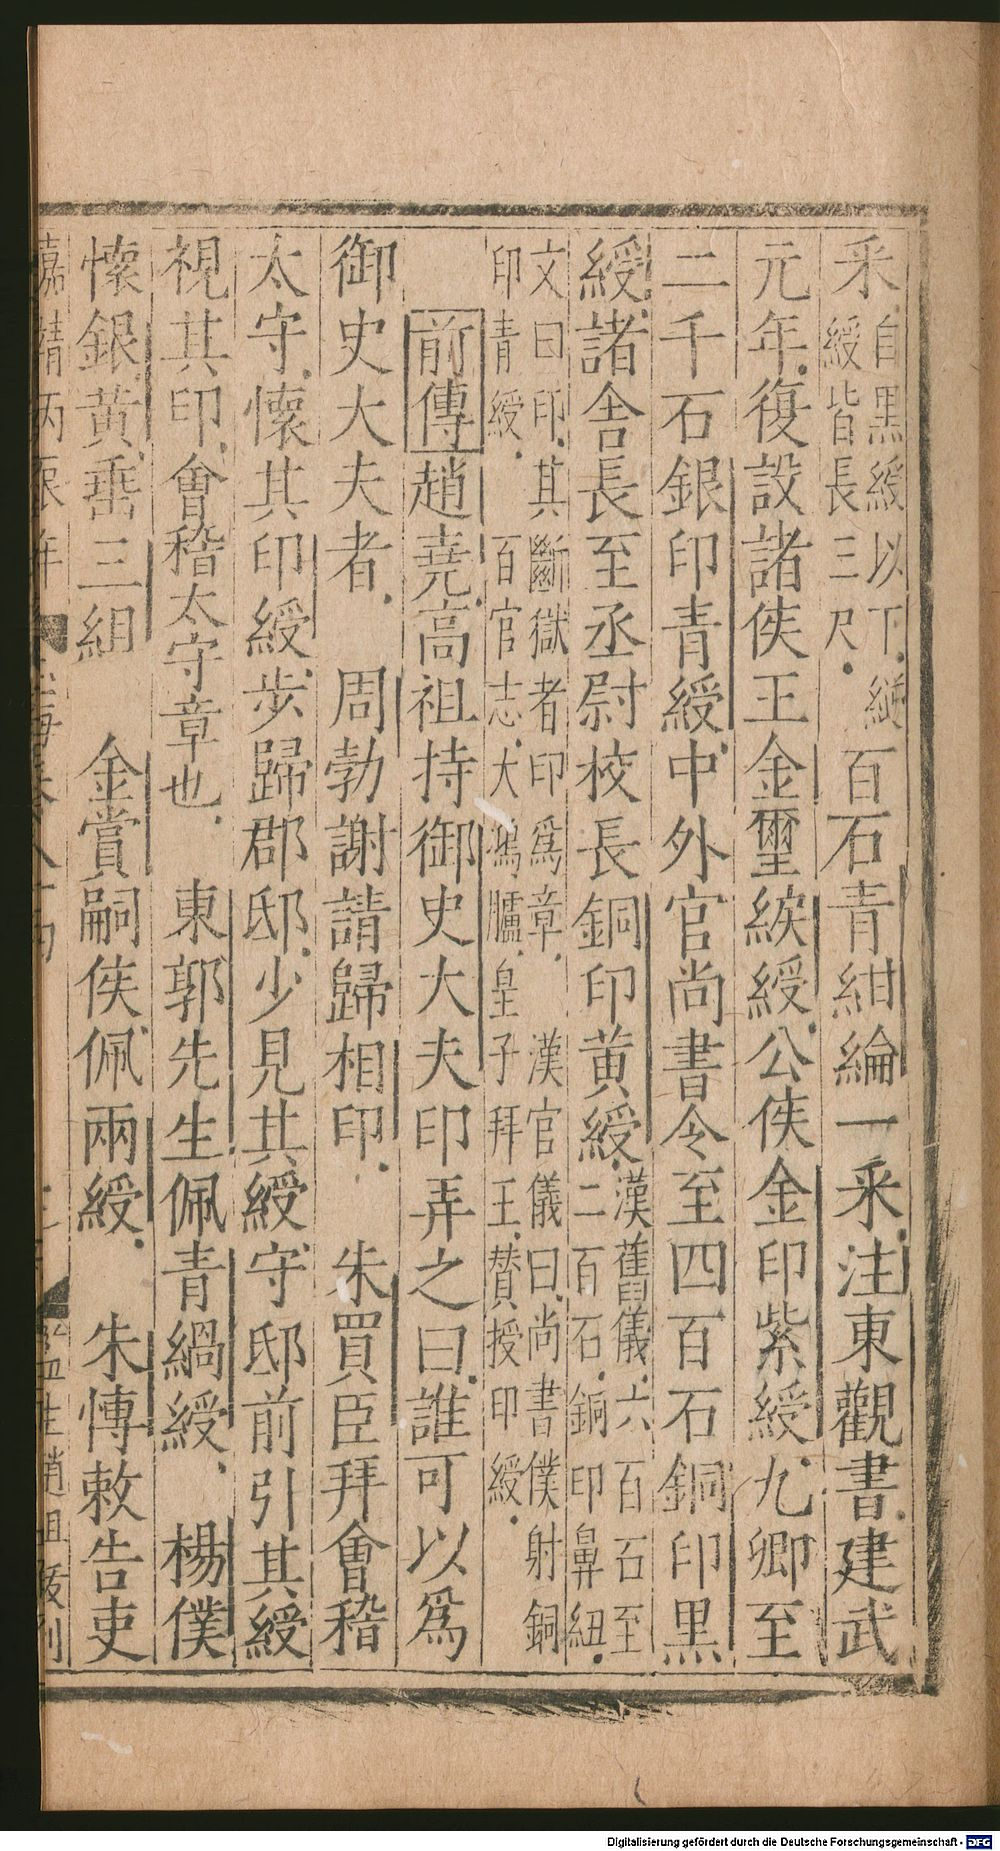 采自黑綬以下縌
綬皆長三尺百石青紺綸一采注東觀書建武
元年復設諸侯王金璽綟綬公侯金印紫綬九卿至
二千石銀印青綬中外官尚書令至四百石銅印黑
綬諸舍長至丞尉校長銅印黃綬漢舊儀六百石至
二百石銅印鼻紐
文曰印其斷獄者印爲章漢官儀曰尚書僕射銅
印青綬百官志大鴻臚皇子拜王贊授印綬
前傳趙堯高祖持御史大夫印弄之曰誰可以爲
御史大夫者 周勃謝請歸相印 朱買臣拜會稽
太守懷其印綬步歸郡邸少見其綬守邸前引其綬
視其印會稽太守章也 東郭先生佩青緺綬 楊僕
懷銀黃垂三組 金賞嗣侯佩兩綬 朱博敕告吏
嘉靖丙辰年
Digitalisierung gefördert durch die Deutsche Forschungsgemeinschaft - DFG